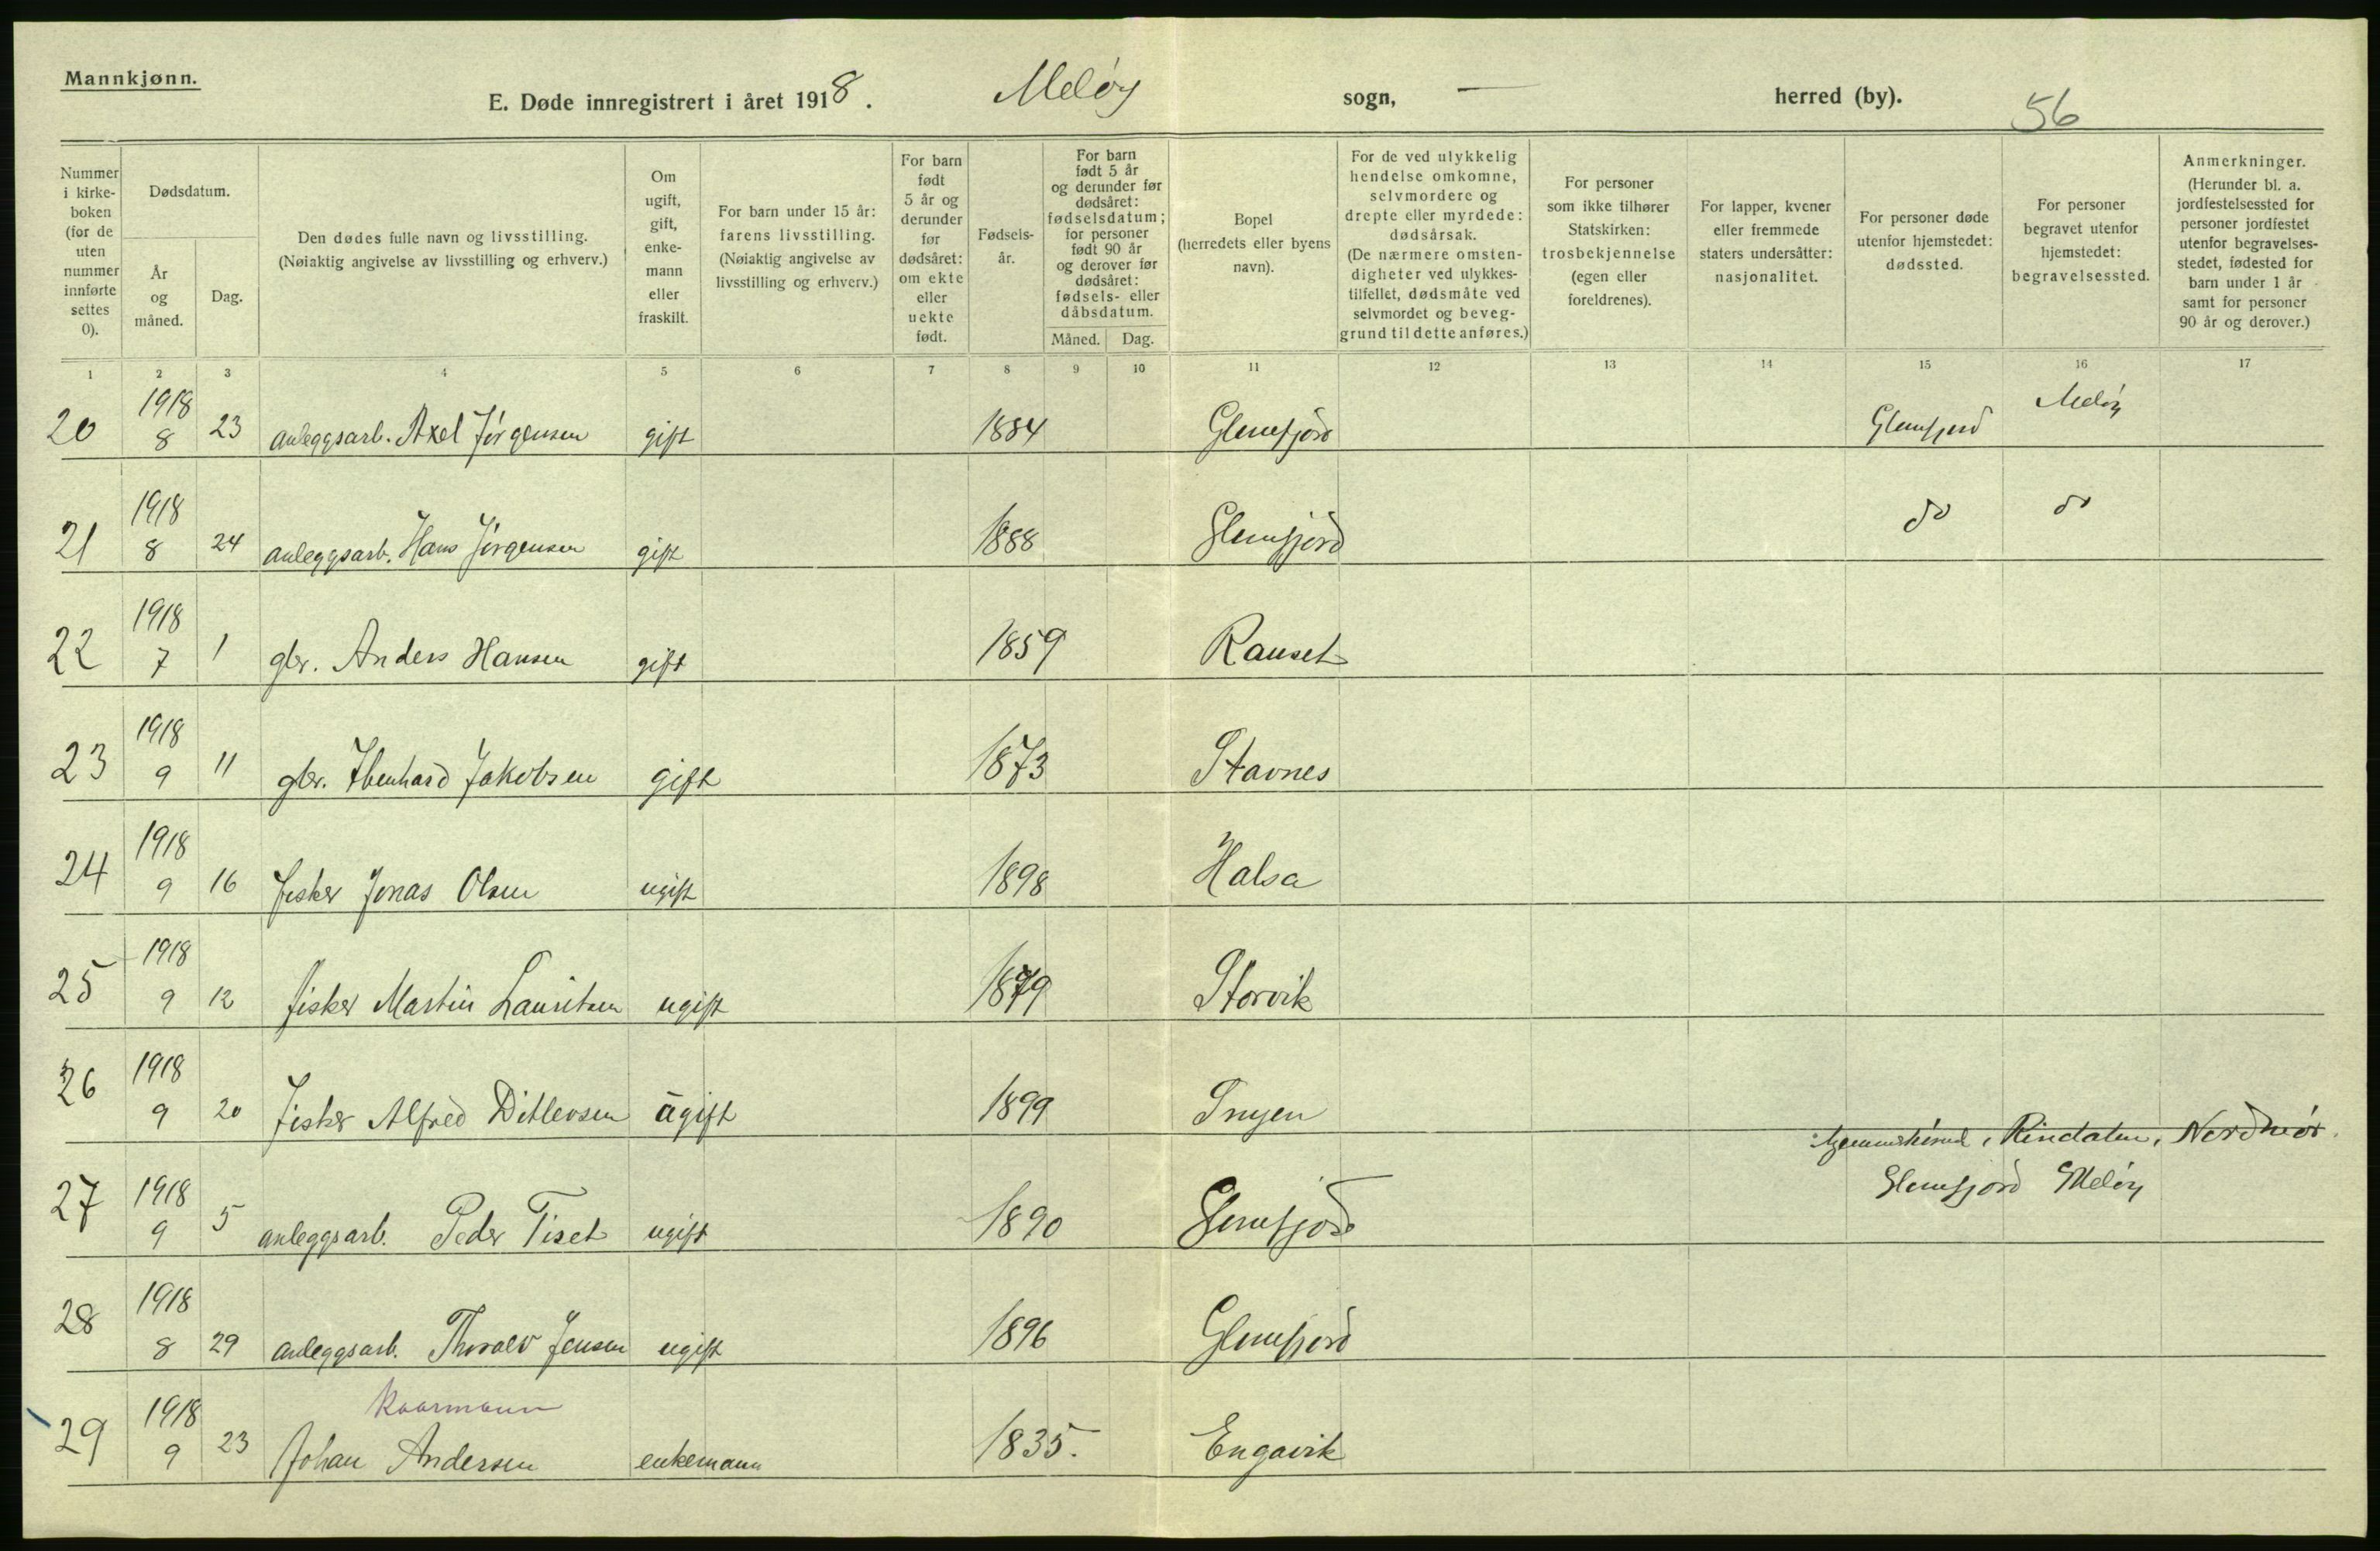 Mannkjønn.
E. Døde innregistrert i året 1918. Meløy sogn, — herred (by). 56
Nummer i kirke-boken (for de uten nummer innførte settes 0).
Dødsdatum.
År og måned.
Dag.
Den dødes fulle navn og livsstilling. (Nøiaktig angivelse av livsstilling og erhverv.)
Om ugift, gift, enke-mann eller fraskilt.
For barn under 15 år: farens livsstilling. (Nøiaktig angivelse av livsstilling og erhverv.)
For barn født 5 år og derunder før dødsåret: om ekte eller uekte født.
Fødsels-år.
For barn født 5 år og derunder før dødsåret: fødselsdatum; for personer født 90 år og derover før dødsåret: fødsels- eller dåbsdatum.
Måned. Dag.
Bopel (herredets eller byens navn).
For de ved ulykkelig hendelse omkomne, selvmordere og drepte eller myrdede: dødsårsak. (De nærmere omsten-digheter ved ulykkes-tilfellet, dødsmåte ved selvmordet og beveg-grund til dette anføres.)
For personer som ikke tilhører Statskirken: trosbekjennelse (egen eller foreldrenes).
For lapper, kvener eller fremmede staters undersåtter: nasjonalitet.
For personer døde utenfor hjemstedet: dødssted.
For personer begravet utenfor hjemstedet: begravelsessted.
Anmerkninger. (Herunder bl. a. jordfestelsessted for personer jordfestet utenfor begravelses-stedet, fødested for barn under 1 år samt for personer 90 år og derover.)
1 2 3 4 5 6 7 8 9 10 11 12 13 14 15 16 17
20 1918 8 23 anleggsarb. Axel Jørgensen gift 1884 Glomfjord Glomfjord Meløy
21 1918 8 24 anleggsarb. Hans Jørgensen gift 1888 Glomfjord do do
22 1918 7 1 gbr. Anders Hansen gift 1859 Ranset
23 1918 9 11 gbr. Ibenhard Jakobsen gift 1873 Stavnes
24 1918 9 16 fisker Jonas Olsen ugift 1898 Halsa
25 1918 9 12 fisker Martin Lauritsen ugift 1879 Storvik
26 1918 9 20 fisker Alfred Ditlevsen ugift 1899 Snyen
Rindalen, Nordmør.
27 1918 9 5 anleggsarb. Peder Tiset ugift 1890 Glomfjord Glomfjord Meløy
28 1918 8 29 anleggsarb. Thoralv Jensen ugift 1896 Glomfjord
kaarmann
29 1918 9 23 Johan Andersen enkemann 1835. Engavik